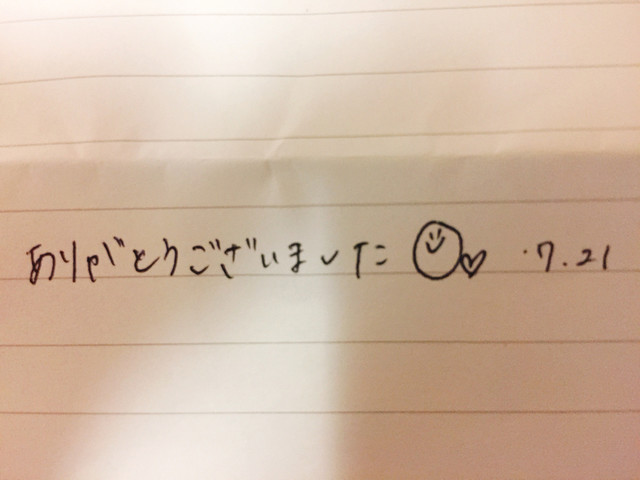 ありがとうございました ・7.21